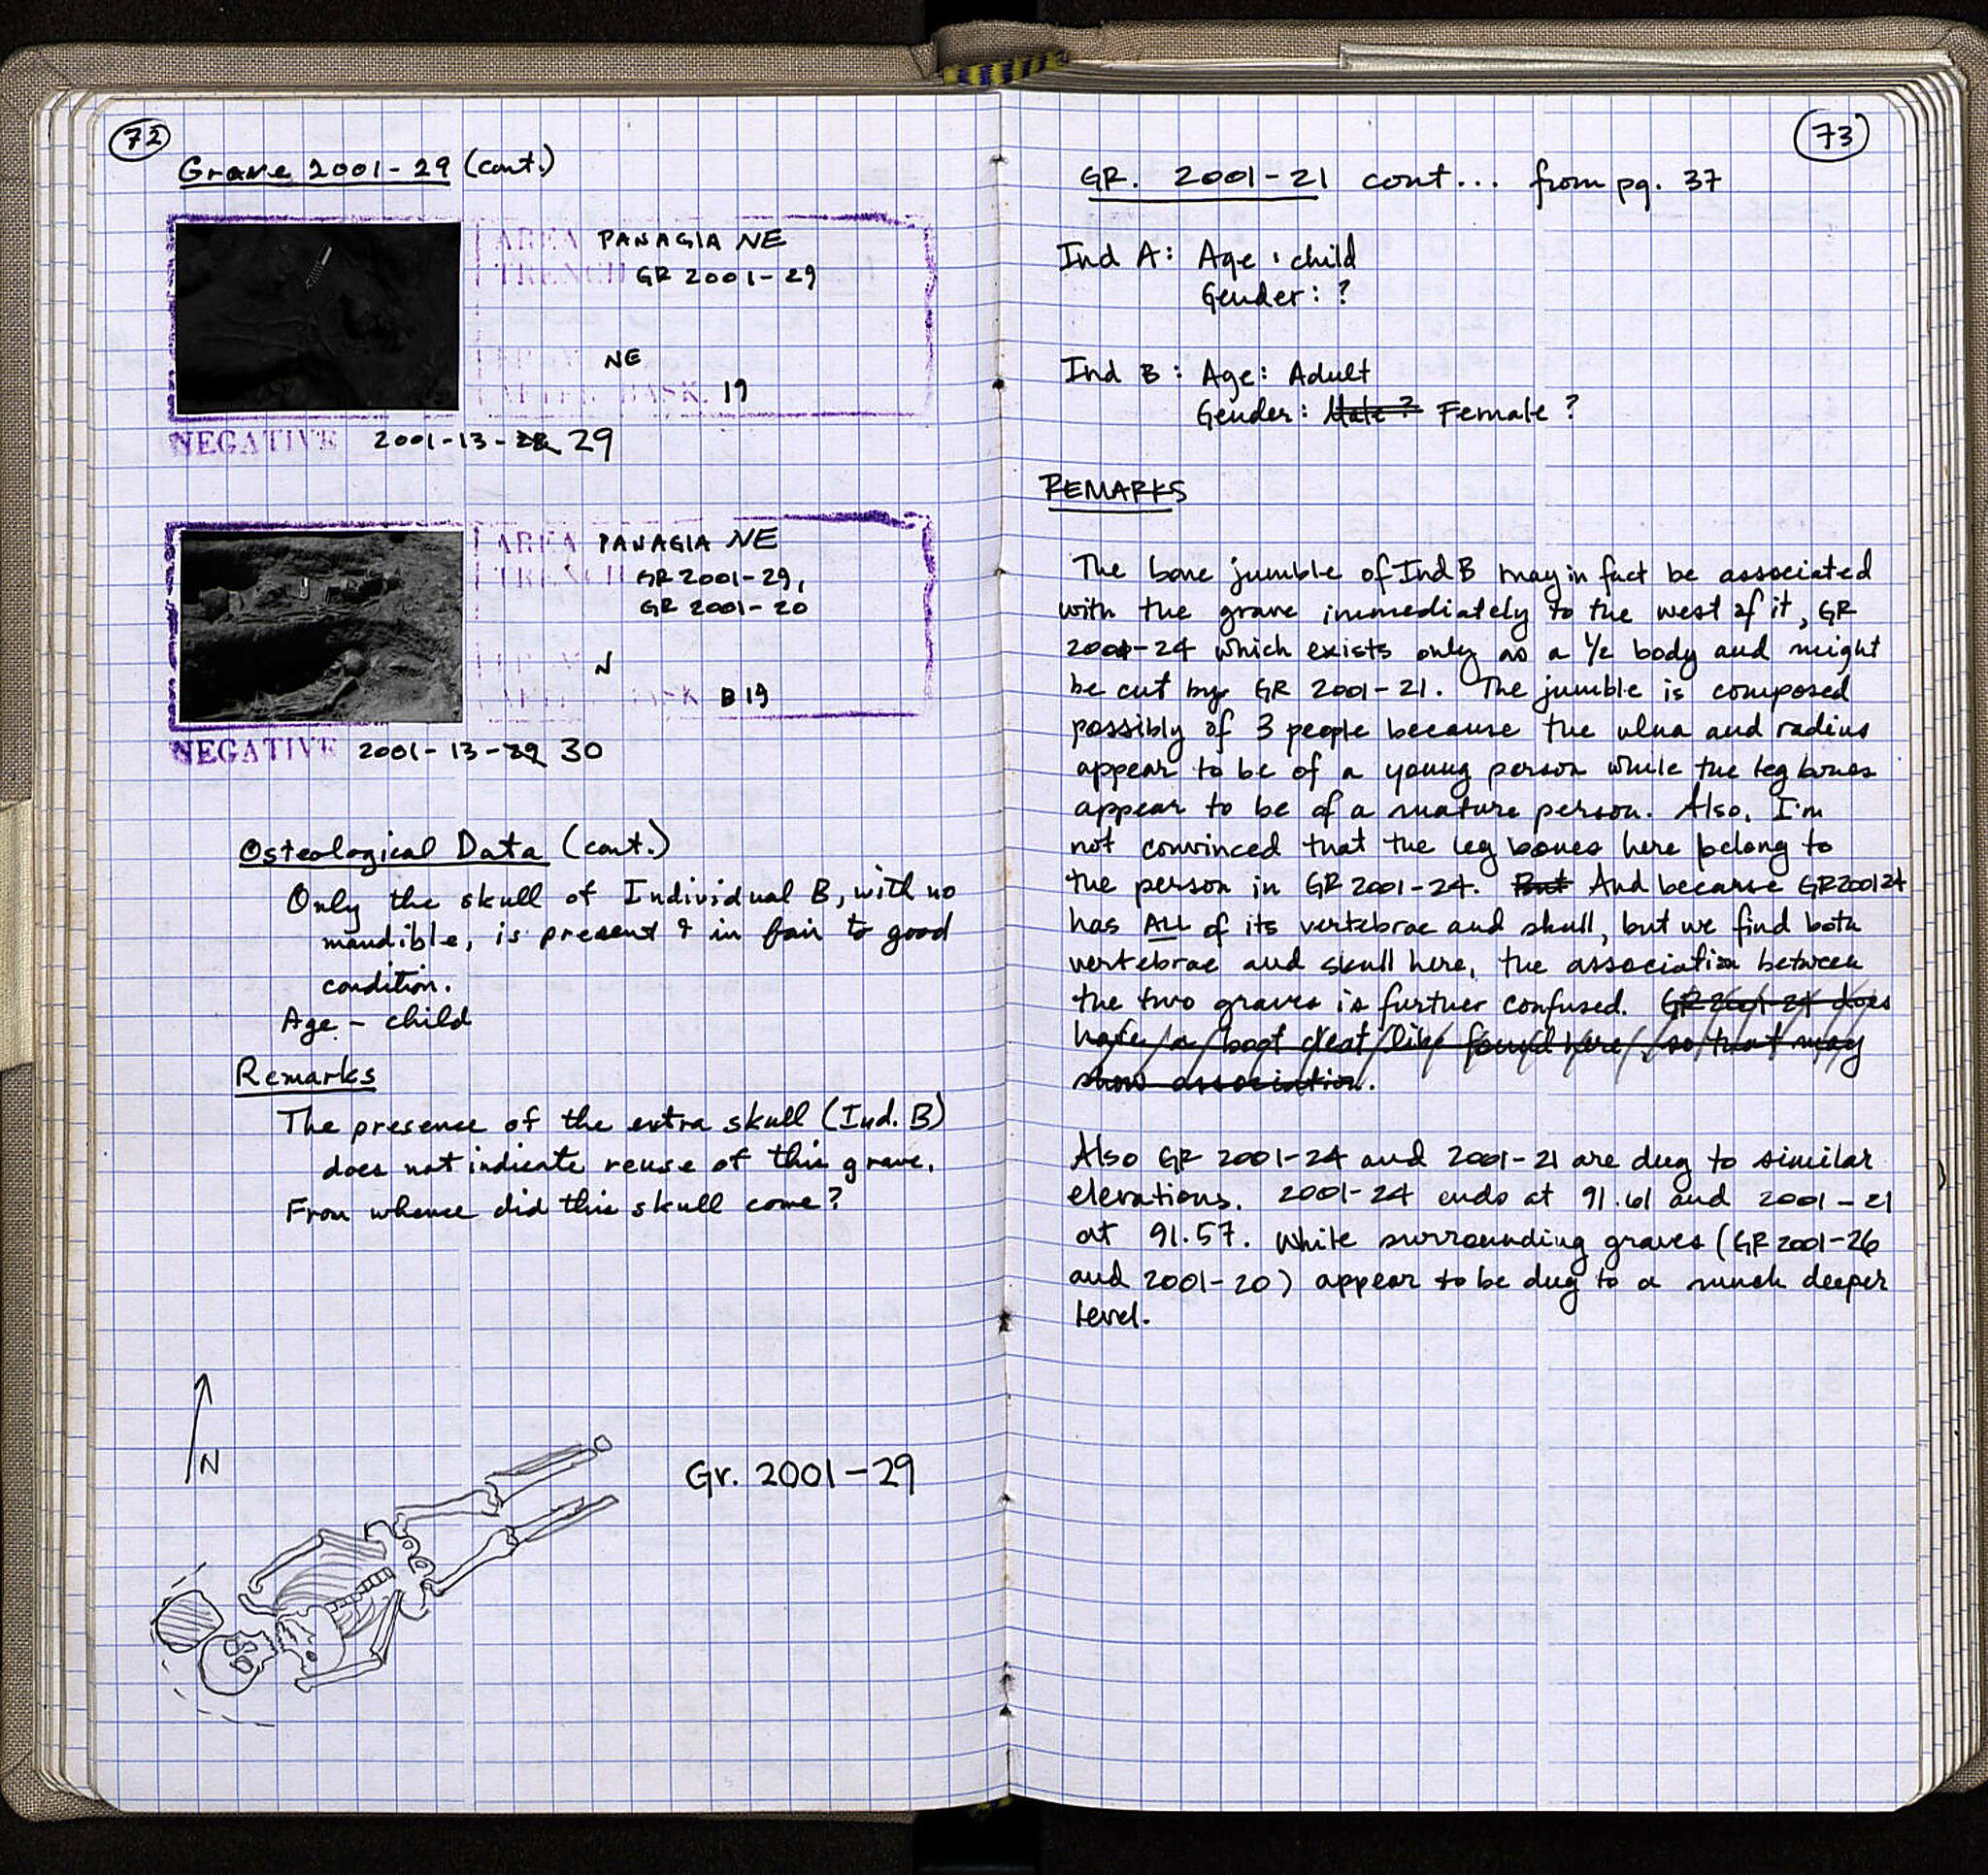 72
Grave 2001-29 (cont.)
AREA PANAGIA NE
TRENCH GR 2001-29
NE
AFTER BASK. 19
NEGATIVE 2001-13-28 29
AREA PANAGIA NE
TRENCH GR 2001-29,
GR 2001-20
VIEW N
BASK B19
NEGATIVE 2001-13-29 30
Osteological Data (cont.)
Only the skull of Individual B, with no
mandible, is present & in fair to good
condition.
Age - child
Remarks
The presence of the extra skull (Ind. B)
does not indicate reuse of this grave.
From whence did this skull come?
N
Gr. 2001-29
73
GR. 2001-21 cont... from pg. 37
Ind A: Age: child
Gender: ?
Ind B: Age: Adult
Gender: Male? Female?
REMARKS
The bone jumble of Ind B may in fact be associated
with the grave immediately to the west of it, GR
2001-24 which exists only as a 1/2 body and might
be cut by GR 2001-21. The jumble is composed
possibly of 3 people because the ulna and radius
appear to be of a young person while the leg bones
appear to be of a mature person. Also, I'm
not convinced that the leg bones here belong to
the person in GR 2001-24. But And because GR200124
has ALL of its vertebrae and skull, but we find both
vertebrae and skull here, the association between
the two graves is further confused. GR 2001-24 does
have a boot cleat like found here, so that may
show association.
Also GR 2001-24 and 2001-21 are dug to similar
elevations. 2001-24 ends at 91.61 and 2001-21
at 91.57. While surrounding graves (GR 2001-26
and 2001-20) appear to be dug to a much deeper
level.